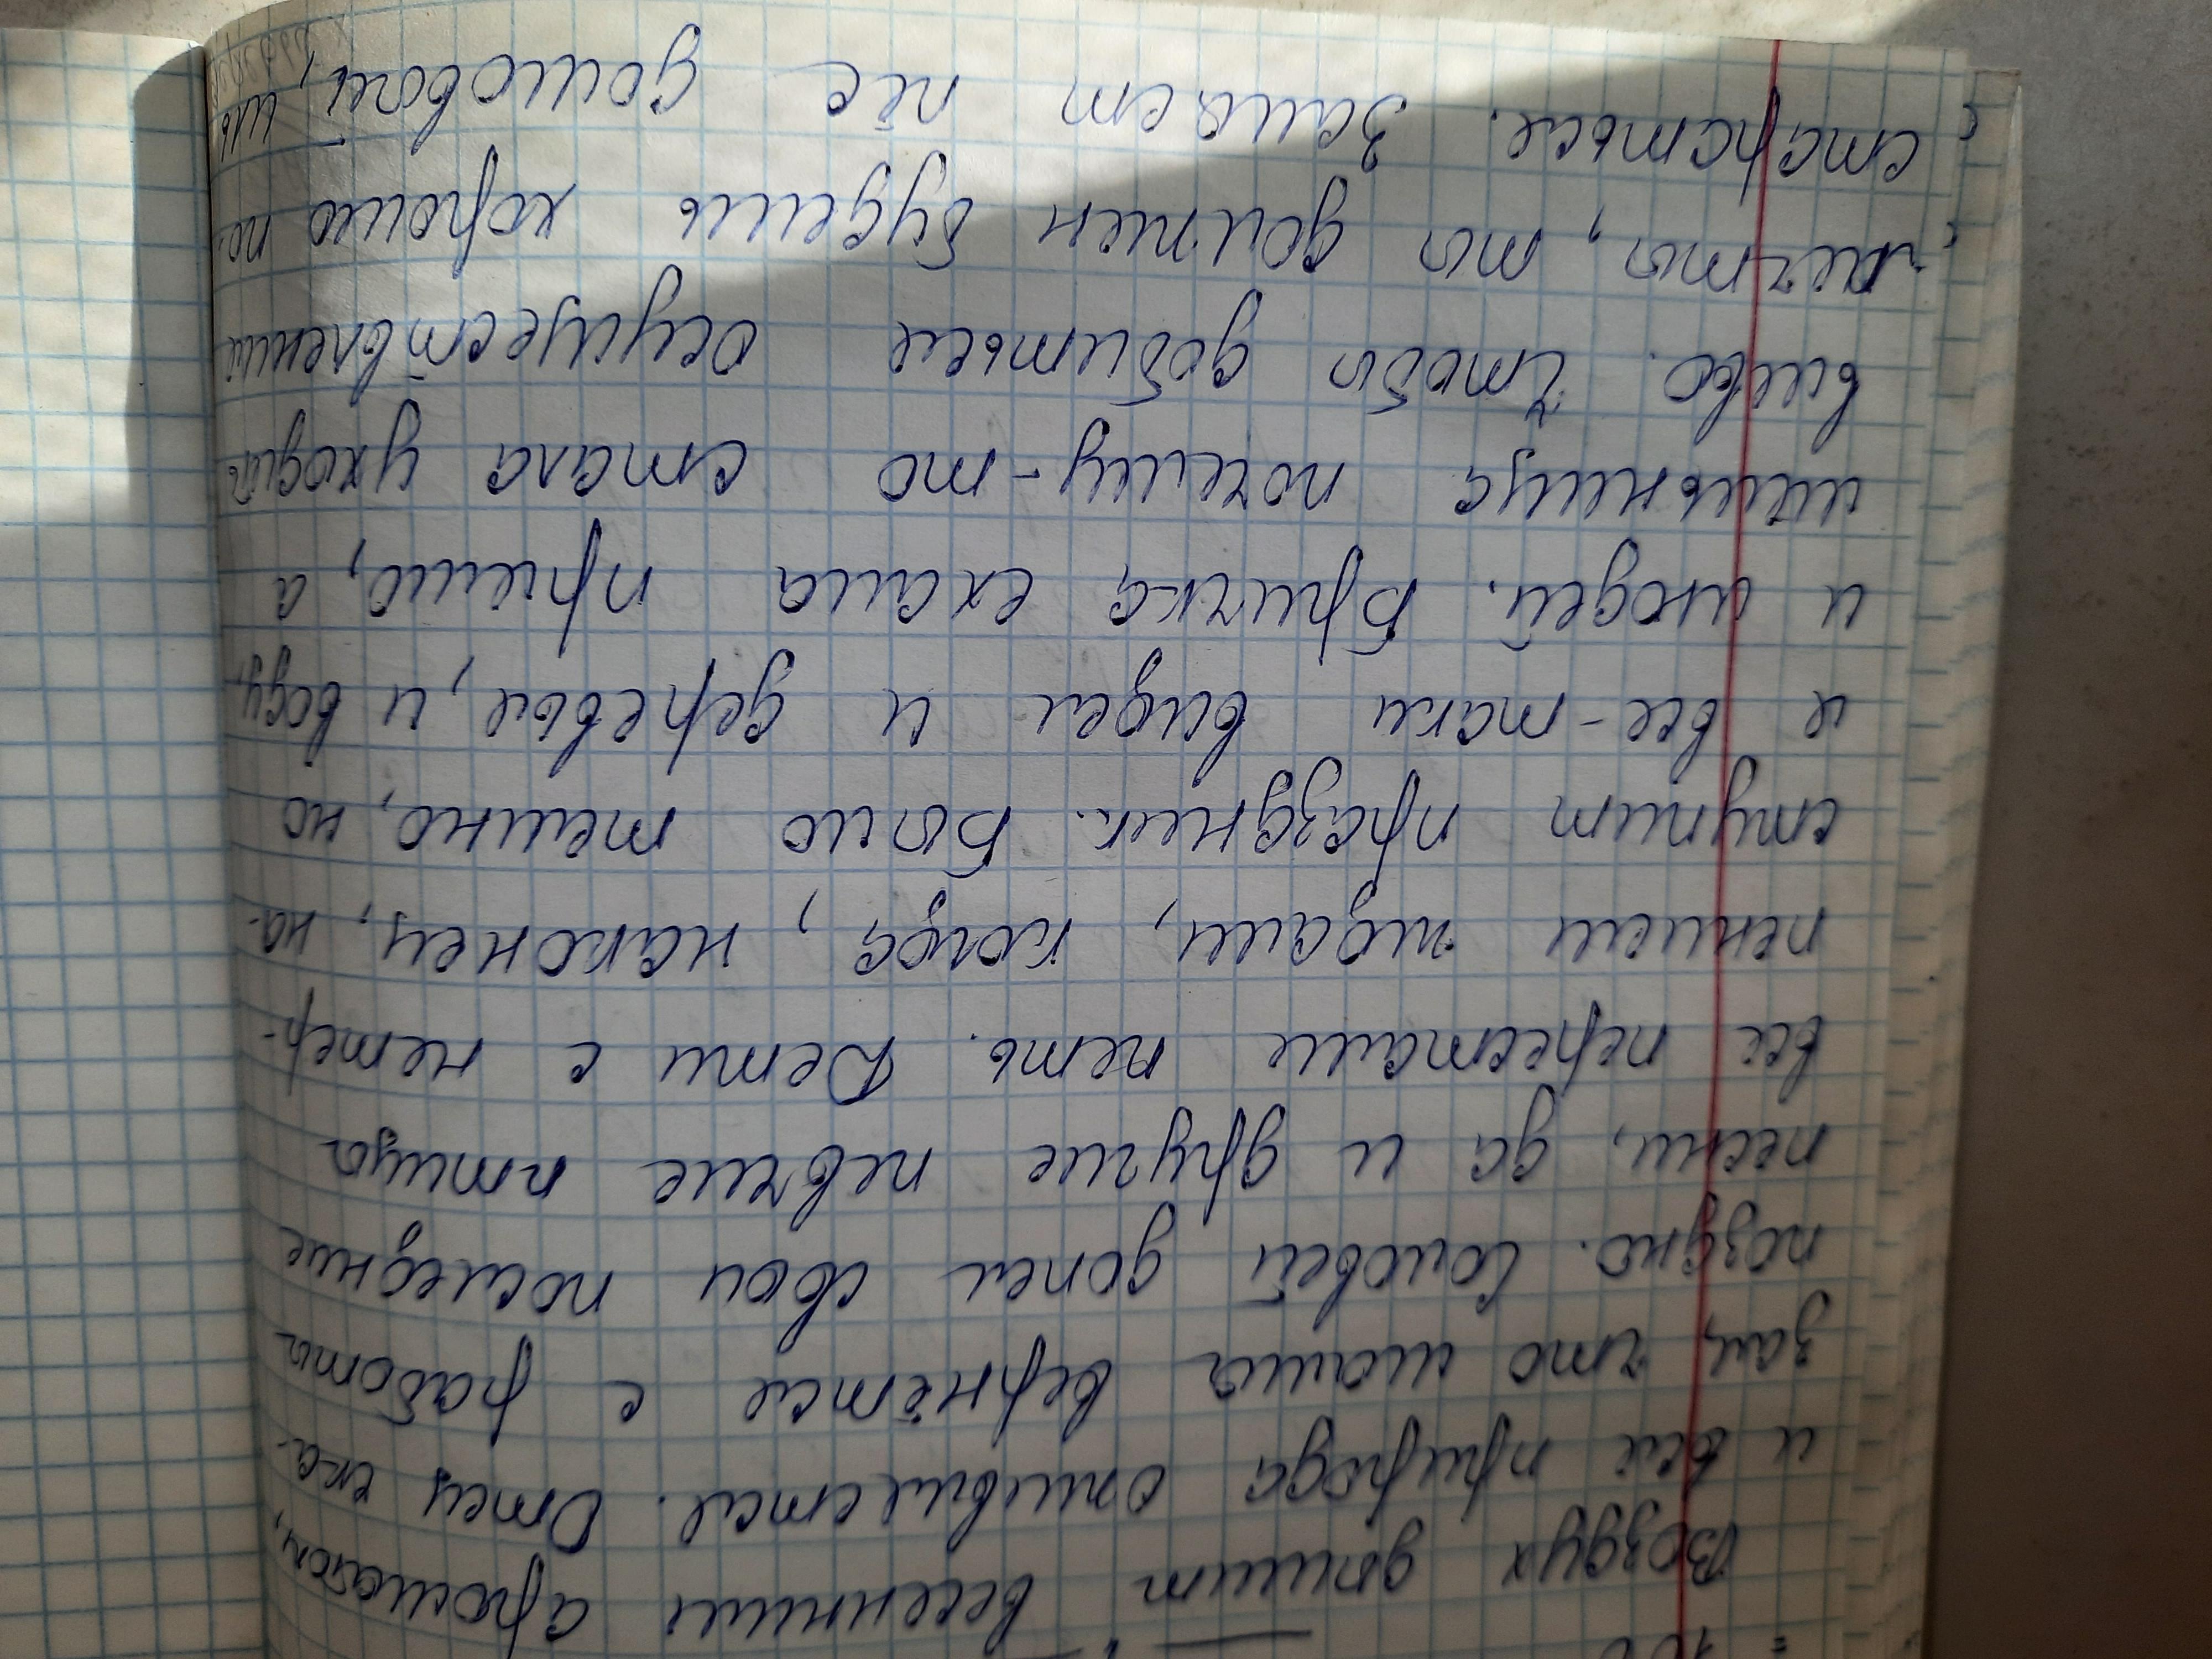 Воздух дышит весенним ароматом,
и вся природа оживляется. Отец ска-
зал, что мама вернётся с работы
поздно. Соловей допел свои последние
песни, да и другие певчие птицы
все перестали петь. Дети с нетер-
пением ждали, когда, наконец, на-
ступит праздник. Было темно, но
я все-таки видел и деревья, и воду,
и людей. Бричка ехала прямо, а
мельница почему-то стала уходить
влево. Чтобы добиться осуществления
мечты, ты должен будешь хорошо по-
стараться. Залает пёс домовой, иль